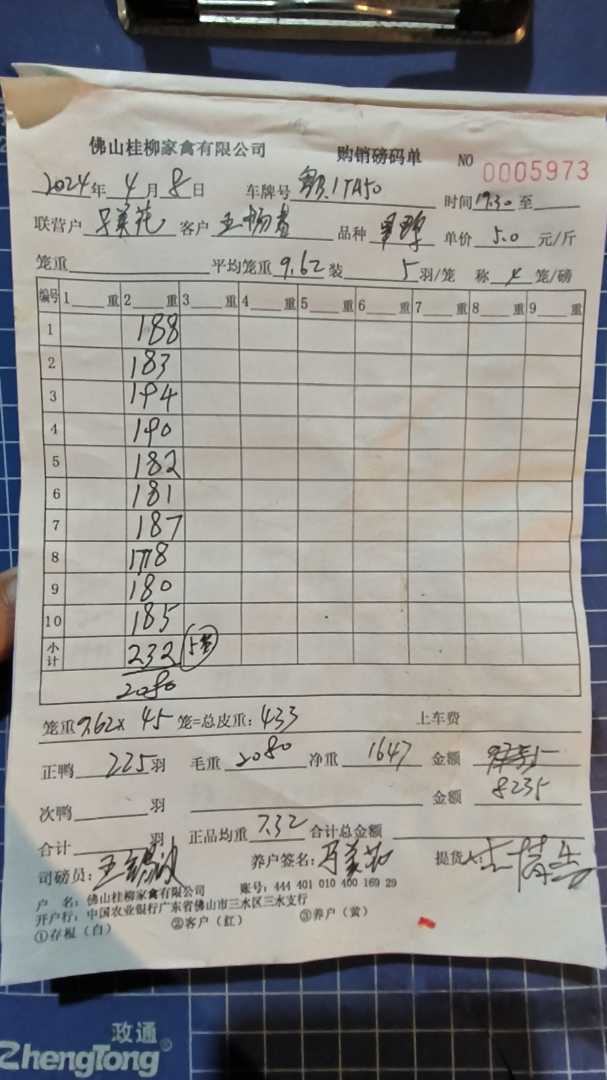 佛山桂柳家禽有限公司 购销磅码单 NO 0005973
2024年4月8日 车牌号 1TA50 时间 19:30 至
联营户 客户 王 品种 单价 5.0 元/斤
笼重 平均笼重 9.62 装 5 羽/笼 称 4 笼/磅
编号 1 重 2 重 3 重 4 重 5 重 6 重 7 重 8 重 9 重
1 188
2 183
3 194
4 190
5 182
6 181
7 187
8 178
9 180
10 185
小计 232 5笼
2080
笼重 9.62× 45 笼=总皮重: 433 上车费
正鸭 225 羽 毛重 2080 净重 1647 金额
次鸭 羽 金额 8235
合计 羽 正品均重 7.32 合计总金额
司磅员: 王 养户签名: 提货人:
户 名: 佛山桂柳家禽有限公司 账号: 444 401 010 400 169 29
开户行: 中国农业银行广东省佛山市三水区三水支行
①存根(白) ②客户(红) ③养户(黄)
政通
ZhengTong®